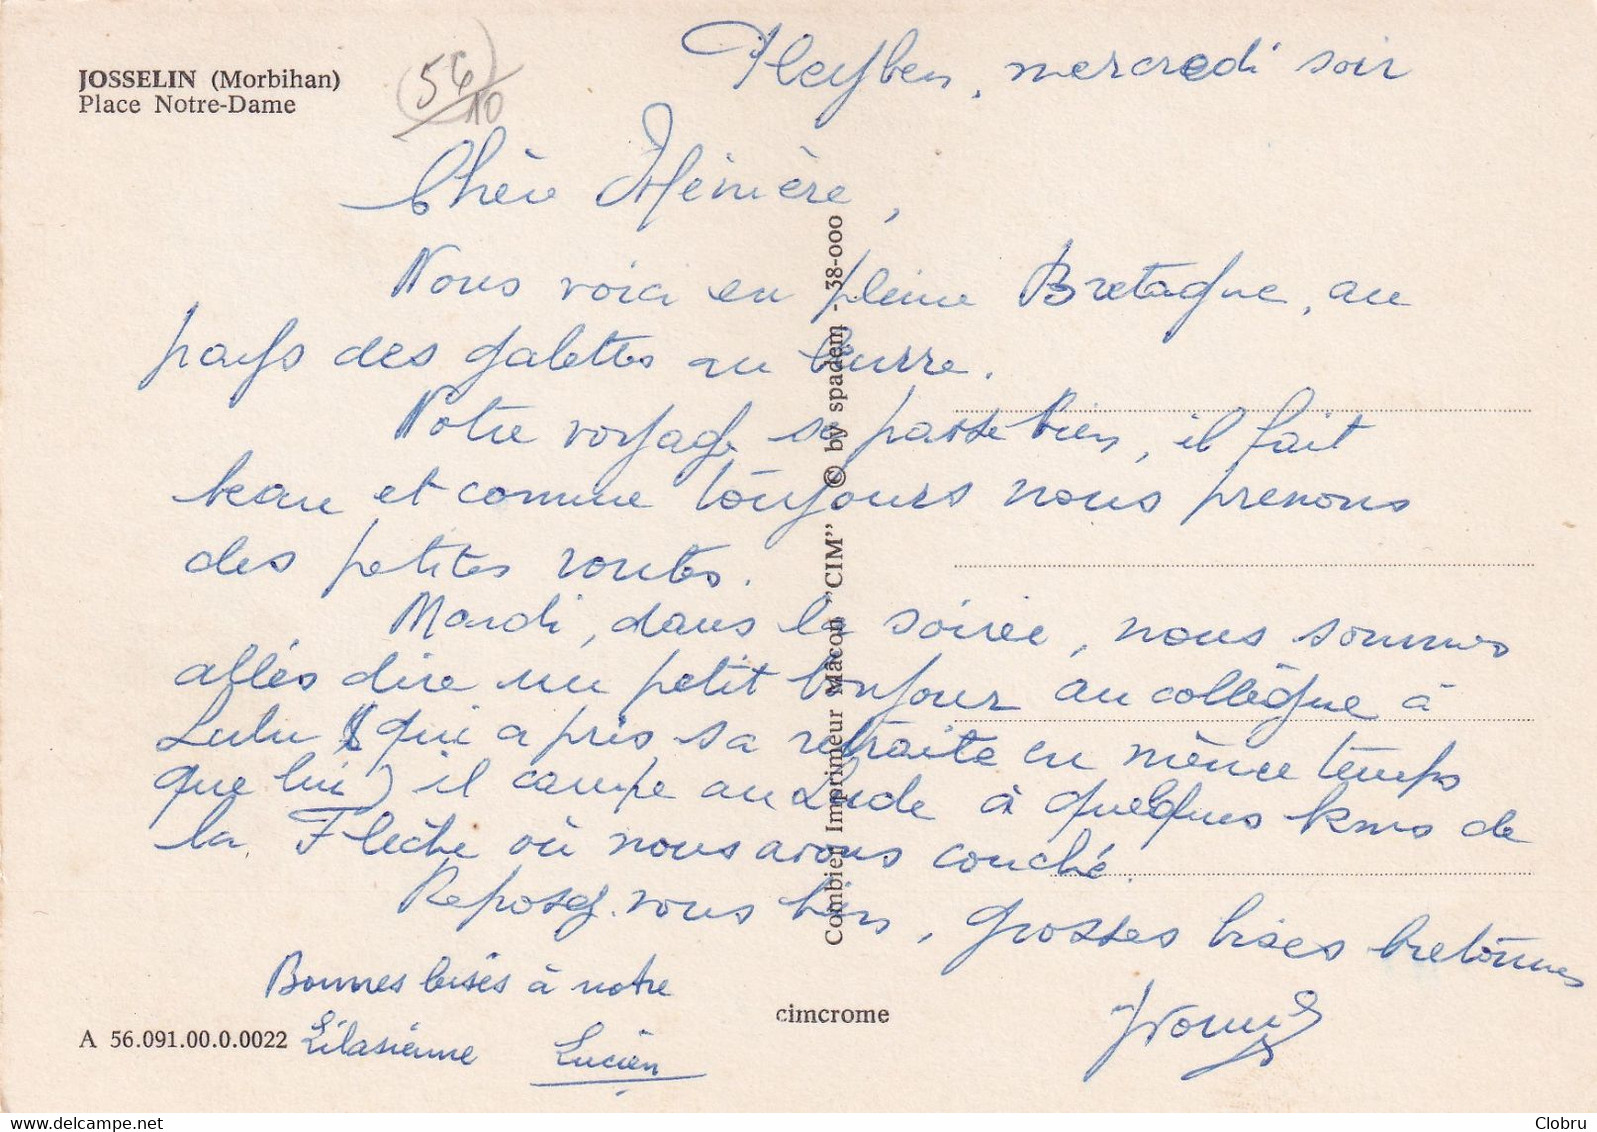 JOSSELIN (Morbihan)
Place Notre-Dame
56
10
Pleyben, mercredi soir
Chère Mémère,
Nous voici en pleine Bretagne, au
pays des galettes au beurre.
Notre voyage se passe bien, il fait
beau et comme toujours nous prenons
des petites routes.
Mardi, dans la soirée, nous sommes
allés dire un petit bonjour au collègue à
Lulu (qui a pris sa retraite en même temps
que lui) il campe au Lude à quelques kms de
la Flèche où nous avons couché.
Reposez-vous bien, grosses bises bretonnes
Yvonne
Bonnes bises à notre
Lilasienne Lucien
A 56.091.00.0.0022
cimcrome
Combier Imprimeur Mâcon "CIM" © by spadem - 38-000
www.delcampe.net
Clobru